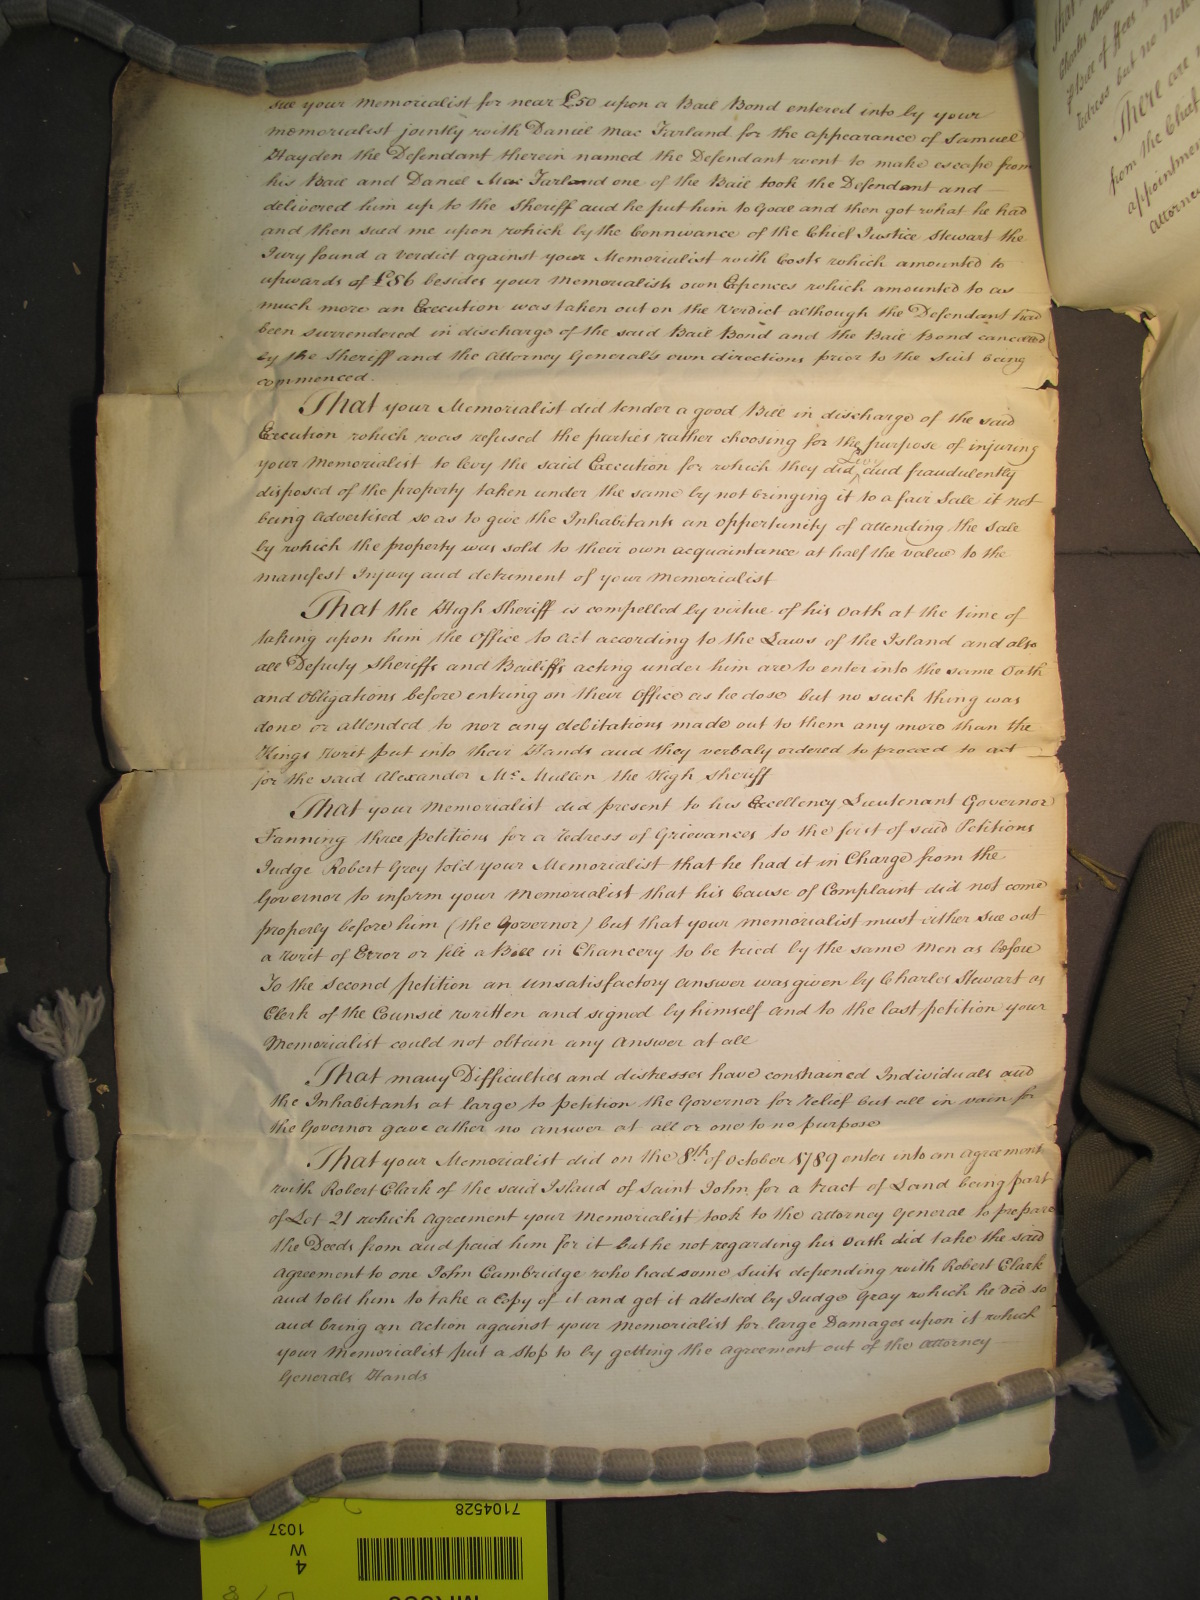 sue your Memorialist for near £50 upon a Bail Bond entered into by your
memorialist jointly with Daniel Mac Farland for the appearance of Samuel
Hayden the Defendant therein named the Defendant went to make escape from
his Bail and Daniel Mac Farland one of the Bail took the Defendant and
delivered him up to the Sheriff and he put him to Goal and then got what he had
and then sued me upon which by the Connivance of the Chief Justice Stewart the
Jury found a verdict against your Memorialist with Costs which amounted to
upwards of £86 besides your Memorialists own Expences which amounted to as
much more an Execution was taken out on the Verdict although the Defendant had
been surrendered in discharge of the said Bail Bond and the Bail Bond cancelled
by the Sheriff and the Attorney General's own directions prior to the Suit being
commenced.
That your Memorialist did tender a good Bill in discharge of the said
Execution which was refused the parties rather choosing for the purpose of injuring
your Memorialist to levy the said Execution for which they did levy and fraudulently
disposed of the property taken under the same by not bringing it to a fair Sale it not
being Advertised so as to give the Inhabitants an opportunity of attending the Sale
by which the property was sold to their own acquaintance at half the value to the
manifest Injury and detriment of your Memorialist
That the High Sheriff is compelled by virtue of his Oath at the time of
taking upon him the Office to Act according to the Laws of the Island and also
all Deputy Sheriffs and Bailiffs acting under him are to enter into the same Oath
and Obligations before entring on their Office as he dose but no such thing was
done or attended to nor any debitations made out to them any more than the
Kings Writ put into their Hands and they verbaly ordered to proceed to act
for the said Alexander Mc Mullen the High Sheriff
That your Memorialist did present to his Excellency Lieutenant Governor
Fanning three Petitions for a redress of Grievances to the first of said Petitions
Judge Robert Grey told your Memorialist that he had it in Charge from the
Governor to inform your Memorialist that his Cause of Complaint did not come
properly before him (the Governor) but that your memorialist must either sue out
a Writ of Error or file a Bill in Chancery to be tried by the same Men as before
To the second petition an unsatisfactory answer was given by Charles Stewart as
Clerk of the Counsil written and signed by himself and to the last petition your
Memorialist could not obtain any Answer at all
That many Difficulties and distresses have constrained Individuals and
the Inhabitants at large to petition the Governor for relief but all in vain for
the Governor gave either no answer at all or one to no purpose
That your Memorialist did on the 8th of October 1789 enter into an Agreement
with Robert Clark of the said Island of Saint John for a tract of Land being part
of Lot 21 which Agreement your Memorialist took to the Attorney General to prepare
the Deeds from and paid him for it but he not regarding his Oath did take the said
Agreement to one John Cambridge who had some Suits depending with Robert Clark
and told him to take a Copy of it and get it attested by Judge Gray which he did so
and bring an Action against your Memorialist for large Damages upon it which
your Memorialist put a stop to by getting the Agreement out of the Attorney
Generals Hands
That
Charles
redress but no
There are
from the Chief
appointmen
attorne
7104528
1037
W
4